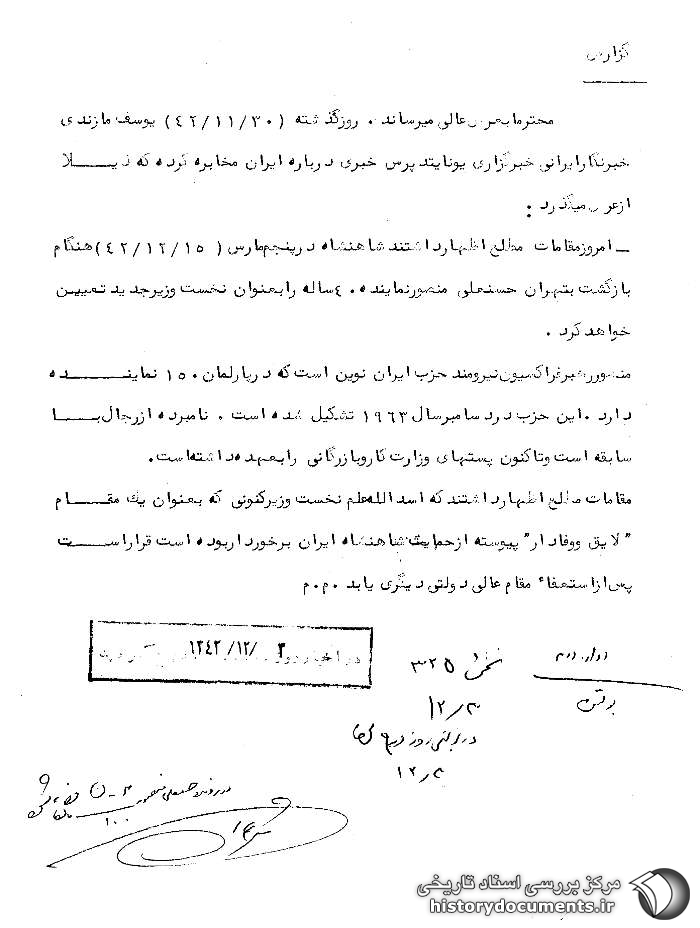 گزارش
محترما بعرض عالی میرساند . روز گذشته (۴۲/۱۱/۳۰) یوسف مازندی
خبرنگار ایرانی خبرگزاری یونایتد پرس خبری درباره ایران مخابره کرده که ذیــــلا
از عرض میگذرد :
ـ امروز مقامات مطلع اظهار داشتند شاهنشاه در پنجم مارس (۴۲/۱۲/۱۵) هنگام
بازگشت بتهران حسنعلی منصور نماینده ۴۰ ساله را بعنوان نخست وزیر جدید تعیین
خواهد کرد .
منصور رهبر فراکسیون نیرومند حزب ایران نوین است که در پارلمان ۱۵۰ نماینــــده
دارد . این حزب در دسامبر سال ۱۹۶۳ تشکیل شده است . نامبرده از رجال بــــا
سابقه است و تاکنون پستهای وزارت کار و بازرگانی را بعهده داشته است .
مقامات مطلع اظهار داشتند که اسداله علم نخست وزیر کنونی که بعنوان یک مقــــام
"لایق و وفادار" پیوسته از حمایت شاهنشاه ایران برخوردار بوده است قرار اســــت
پس از استعفاء مقام عالی دولتی دیگری یابد . م.م
۱۳۴۲/۱۲/ ۳
۳۲۵
۱۲/۳
در بولتن روز
۱۲/۴
حسنعلی منصور
۱۰۰
مرکز بررسی اسناد تاریخی
historydocuments.ir